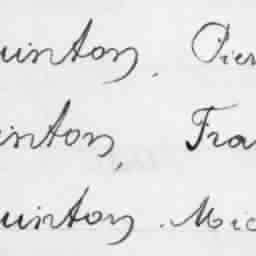 uinton, Pier
inton, Fra
uinton. Mic